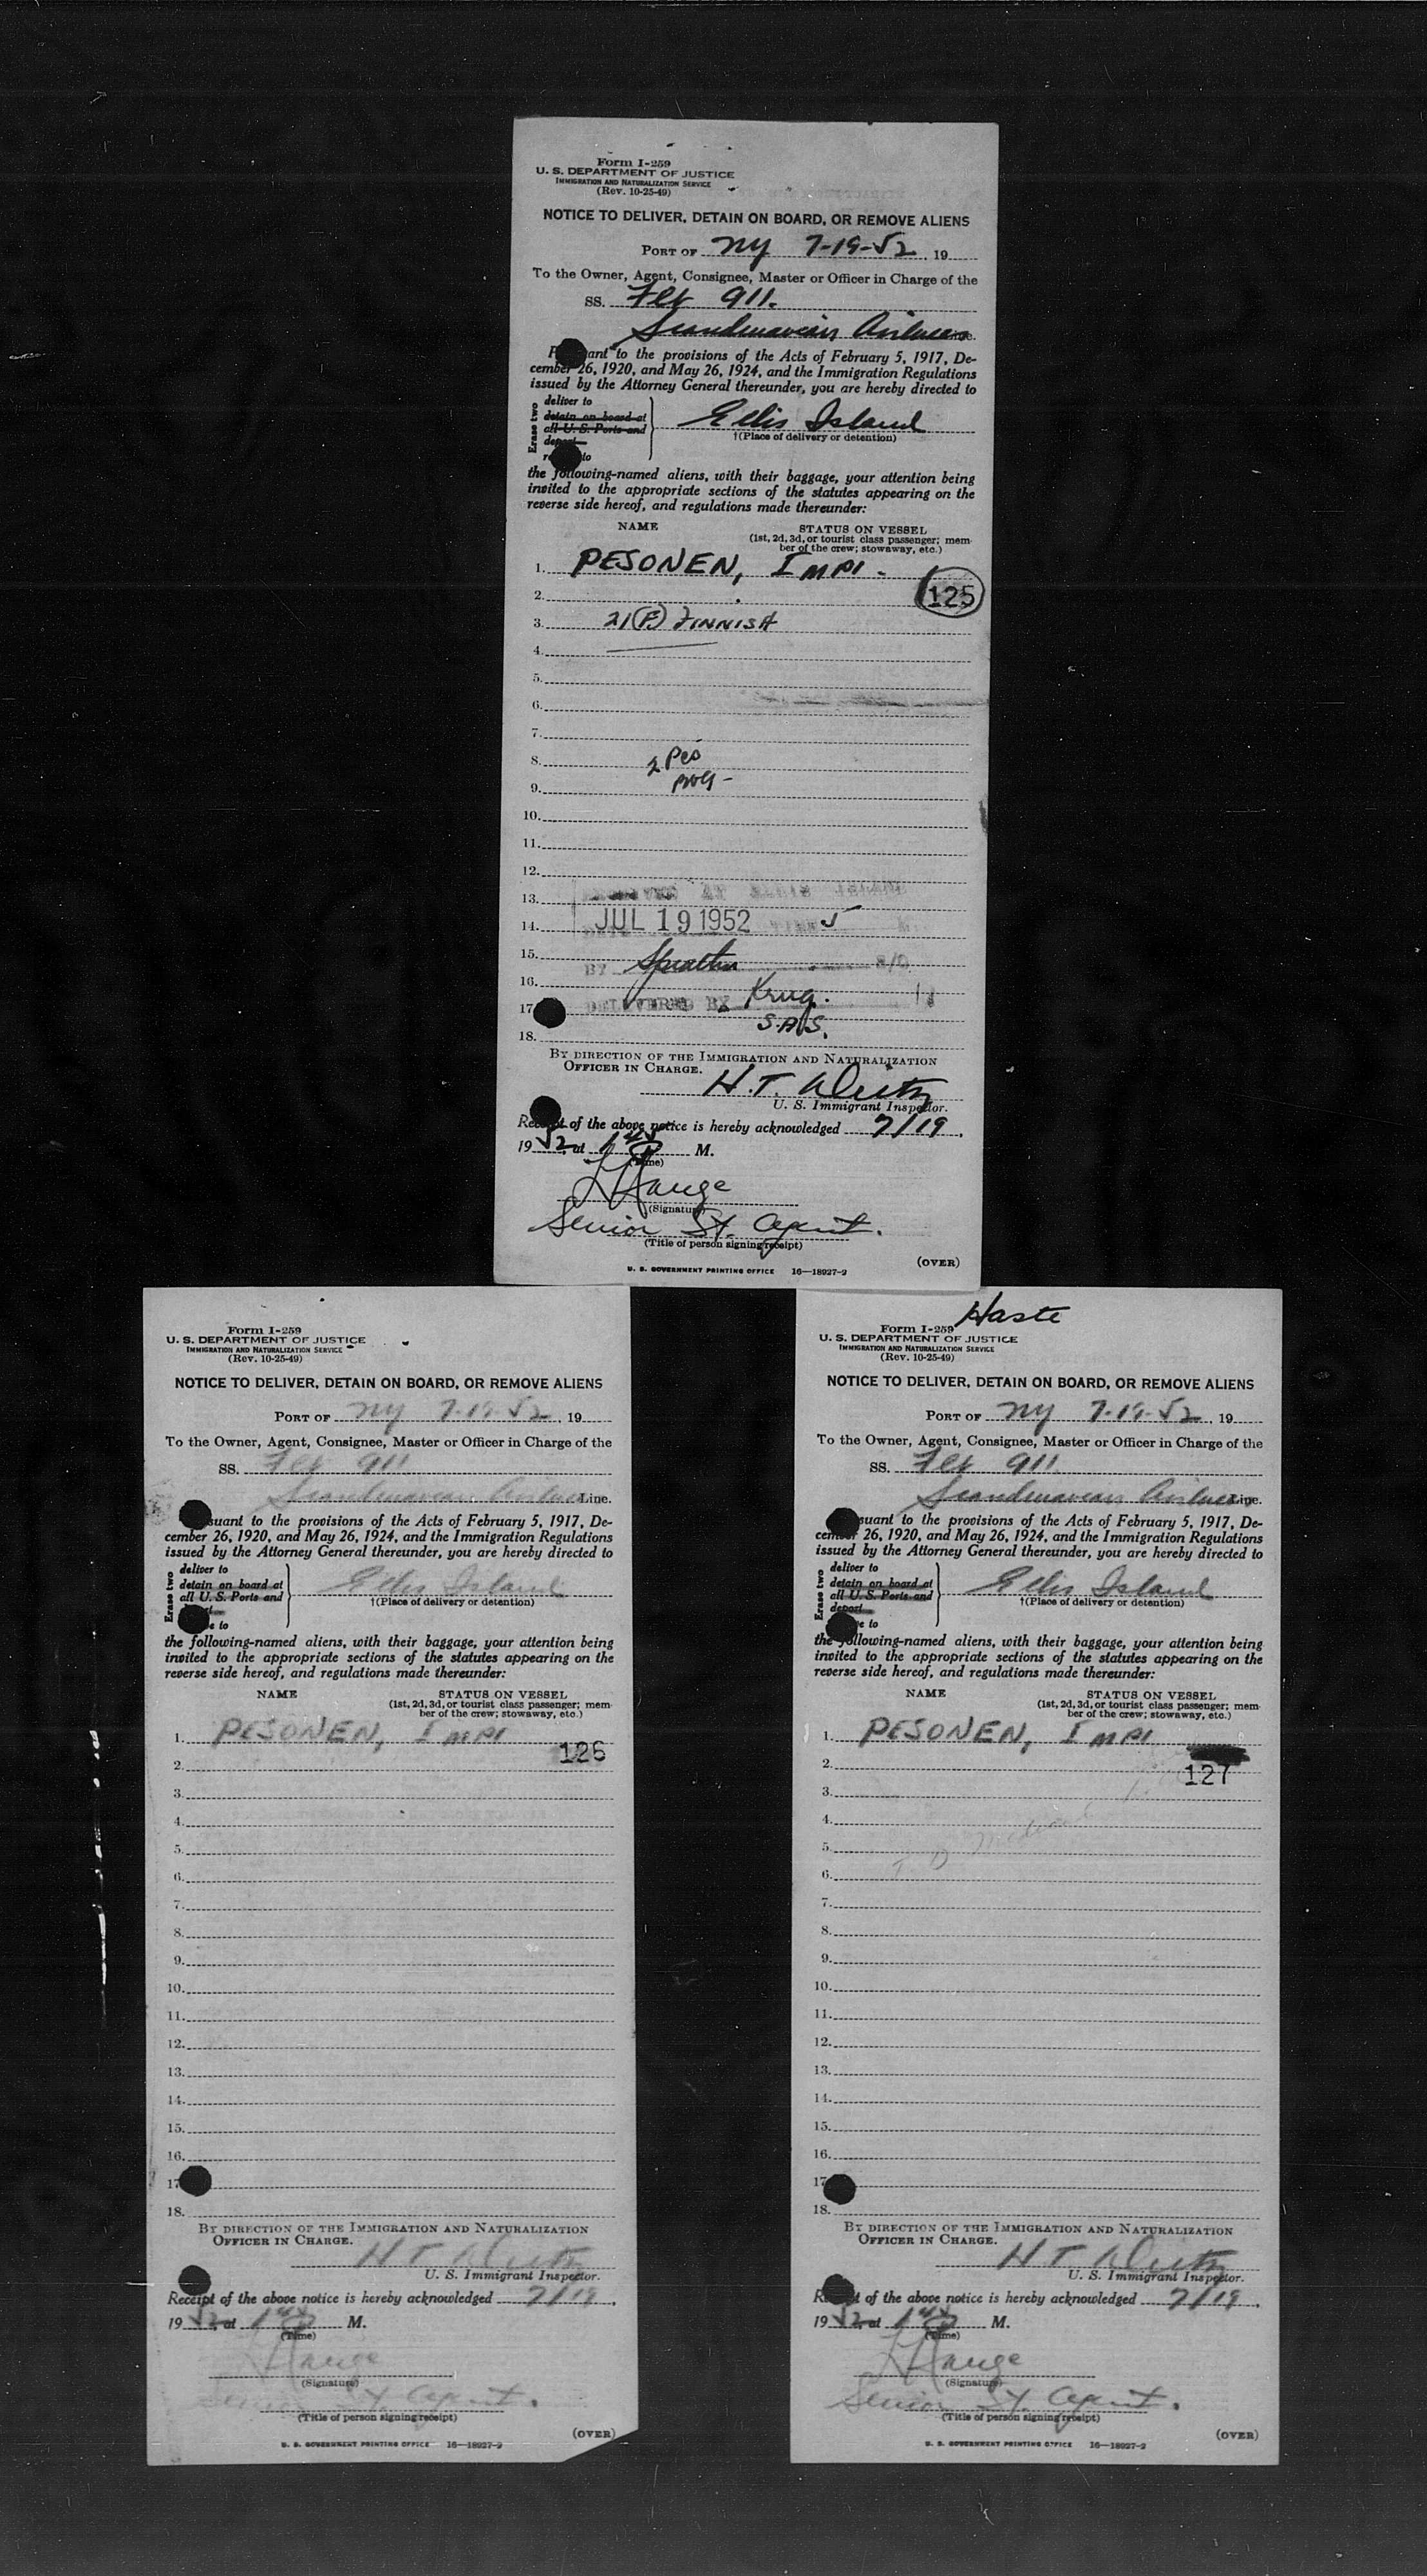 Form I-259
U. S. DEPARTMENT OF JUSTICE
IMMIGRATION AND NATURALIZATION SERVICE
(Rev. 10-25-49)
NOTICE TO DELIVER, DETAIN ON BOARD, OR REMOVE ALIENS
PORT OF NY 7-19-52, 19
To the Owner, Agent, Consignee, Master or Officer in Charge of the
SS. Flt 911.
Scandinavian Airlines
to the provisions of the Acts of February 5, 1917, De-
cember 26, 1920, and May 26, 1924, and the Immigration Regulations
issued by the Attorney General thereunder, you are hereby directed to
Erase two
deliver to
detain on board at
all U. S. Ports and
Ellis Island
†(Place of delivery or detention)
to
the following-named aliens, with their baggage, your attention being
invited to the appropriate sections of the statutes appearing on the
reverse side hereof, and regulations made thereunder:
NAME STATUS ON VESSEL
(1st, 2d, 3d, or tourist class passenger; mem-
ber of the crew; stowaway, etc.)
1. PESONEN, IMPI.
2. 125
3. 21 (F.) FINNISH
4.
5.
6.
7.
8. 2 Pcs
9.
10.
11.
12.
13. AT ELLIS ISLAND
14. JUL 19 1952
15. BY
16. Krug.
17. DELIVERED BY
S.A.S.
18.
BY DIRECTION OF THE IMMIGRATION AND NATURALIZATION
OFFICER IN CHARGE.
H.T.
U. S. Immigrant Inspector.
Receipt of the above notice is hereby acknowledged 7/19,
1952, at 1 45 P M.
(Time)
(Signature)
Senior St. Agent.
(Title of person signing receipt)
(OVER)
U. S. GOVERNMENT PRINTING OFFICE 16—18927-2
Form I-259
U. S. DEPARTMENT OF JUSTICE
IMMIGRATION AND NATURALIZATION SERVICE
(Rev. 10-25-49)
NOTICE TO DELIVER, DETAIN ON BOARD, OR REMOVE ALIENS
PORT OF NY 7-19-52, 19
To the Owner, Agent, Consignee, Master or Officer in Charge of the
SS. Flt 911
Scandinavian Airlines Line.
suant to the provisions of the Acts of February 5, 1917, De-
cember 26, 1920, and May 26, 1924, and the Immigration Regulations
issued by the Attorney General thereunder, you are hereby directed to
Erase two
deliver to
detain on board at
all U. S. Ports and
Ellis Island
†(Place of delivery or detention)
to
the following-named aliens, with their baggage, your attention being
invited to the appropriate sections of the statutes appearing on the
reverse side hereof, and regulations made thereunder:
NAME STATUS ON VESSEL
(1st, 2d, 3d, or tourist class passenger; mem-
ber of the crew; stowaway, etc.)
1. PESONEN, IMPI
2. 126
3.
4.
5.
6.
7.
8.
9.
10.
11.
12.
13.
14.
15.
16.
17
18.
BY DIRECTION OF THE IMMIGRATION AND NATURALIZATION
OFFICER IN CHARGE.
H T
U. S. Immigrant Inspector.
Receipt of the above notice is hereby acknowledged 7/19,
1952, at 1 45 P M.
(Time)
(Signature)
Senior St. Agent.
(Title of person signing receipt)
(OVER)
U. S. GOVERNMENT PRINTING OFFICE 16—18927-2
Haste
Form I-259
U. S. DEPARTMENT OF JUSTICE
IMMIGRATION AND NATURALIZATION SERVICE
(Rev. 10-25-49)
NOTICE TO DELIVER, DETAIN ON BOARD, OR REMOVE ALIENS
PORT OF NY 7-19-52, 19
To the Owner, Agent, Consignee, Master or Officer in Charge of the
SS. Flt 911.
Scandinavian Airlines Line.
suant to the provisions of the Acts of February 5, 1917, De-
cember 26, 1920, and May 26, 1924, and the Immigration Regulations
issued by the Attorney General thereunder, you are hereby directed to
Erase two
deliver to
detain on board at
all U. S. Ports and
deport
Ellis Island
†(Place of delivery or detention)
to
the following-named aliens, with their baggage, your attention being
invited to the appropriate sections of the statutes appearing on the
reverse side hereof, and regulations made thereunder:
NAME STATUS ON VESSEL
(1st, 2d, 3d, or tourist class passenger; mem-
ber of the crew; stowaway, etc.)
1. PESONEN, IMPI
2. 127
3.
4.
5.
6.
7.
8.
9.
10.
11.
12.
13.
14.
15.
16.
17
18.
BY DIRECTION OF THE IMMIGRATION AND NATURALIZATION
OFFICER IN CHARGE.
H T
U. S. Immigrant Inspector.
Receipt of the above notice is hereby acknowledged 7/19,
1952, at 1 45 P M.
(Time)
(Signature)
Senior St. Agent.
(Title of person signing receipt)
(OVER)
U. S. GOVERNMENT PRINTING OFFICE 16—18927-2